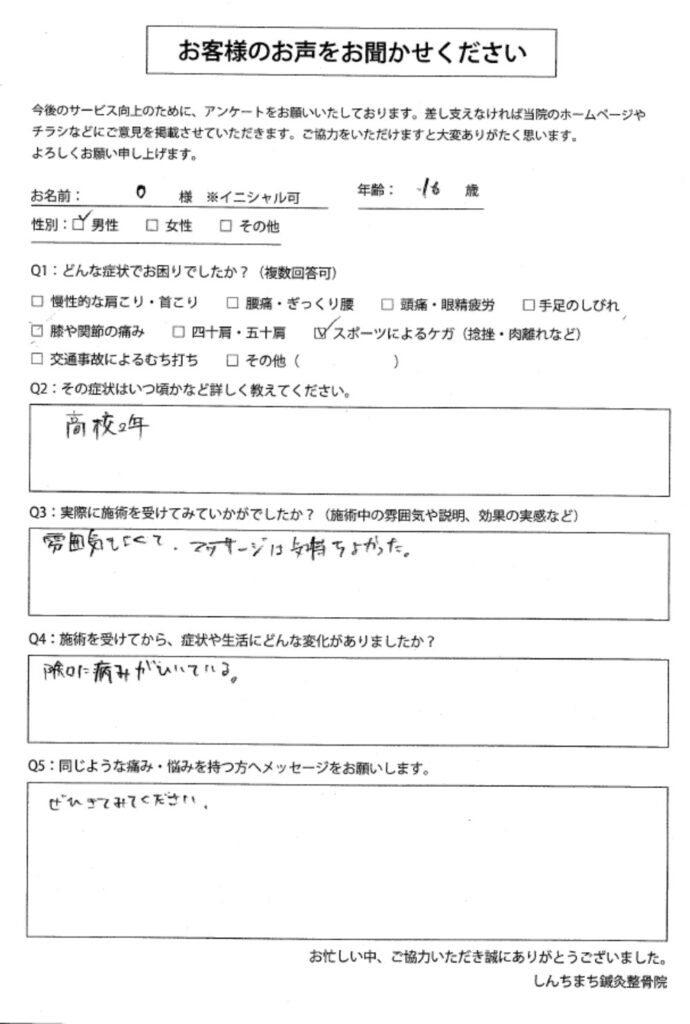 お客様のお声をお聞かせください
今後のサービス向上のために、アンケートをお願いいたしております。差し支えなければ当院のホームページや
チラシなどにご意見を掲載させていただきます。ご協力をいただけますと大変ありがたく思います。
よろしくお願い申し上げます。
お名前： O 様 ※イニシャル可 年齢： 16 歳
性別：☑男性 □ 女性 □ その他
Q1：どんな症状でお困りでしたか？（複数回答可）
□ 慢性的な肩こり・首こり □ 腰痛・ぎっくり腰 □ 頭痛・眼精疲労 □ 手足のしびれ
□ 膝や関節の痛み □ 四十肩・五十肩 ☑ スポーツによるケガ（捻挫・肉離れなど）
□ 交通事故によるむち打ち □ その他（ ）
Q2：その症状はいつ頃かなど詳しく教えてください。
高校2年
Q3：実際に施術を受けてみていかがでしたか？（施術中の雰囲気や説明、効果の実感など）
雰囲気もよくて、マッサージは気持ちよかった。
Q4：施術を受けてから、症状や生活にどんな変化がありましたか？
に痛みがひいている。
Q5：同じような痛み・悩みを持つ方へメッセージをお願いします。
ぜひきてみてください。
お忙しい中、ご協力いただき誠にありがとうございました。
しんちまち鍼灸整骨院